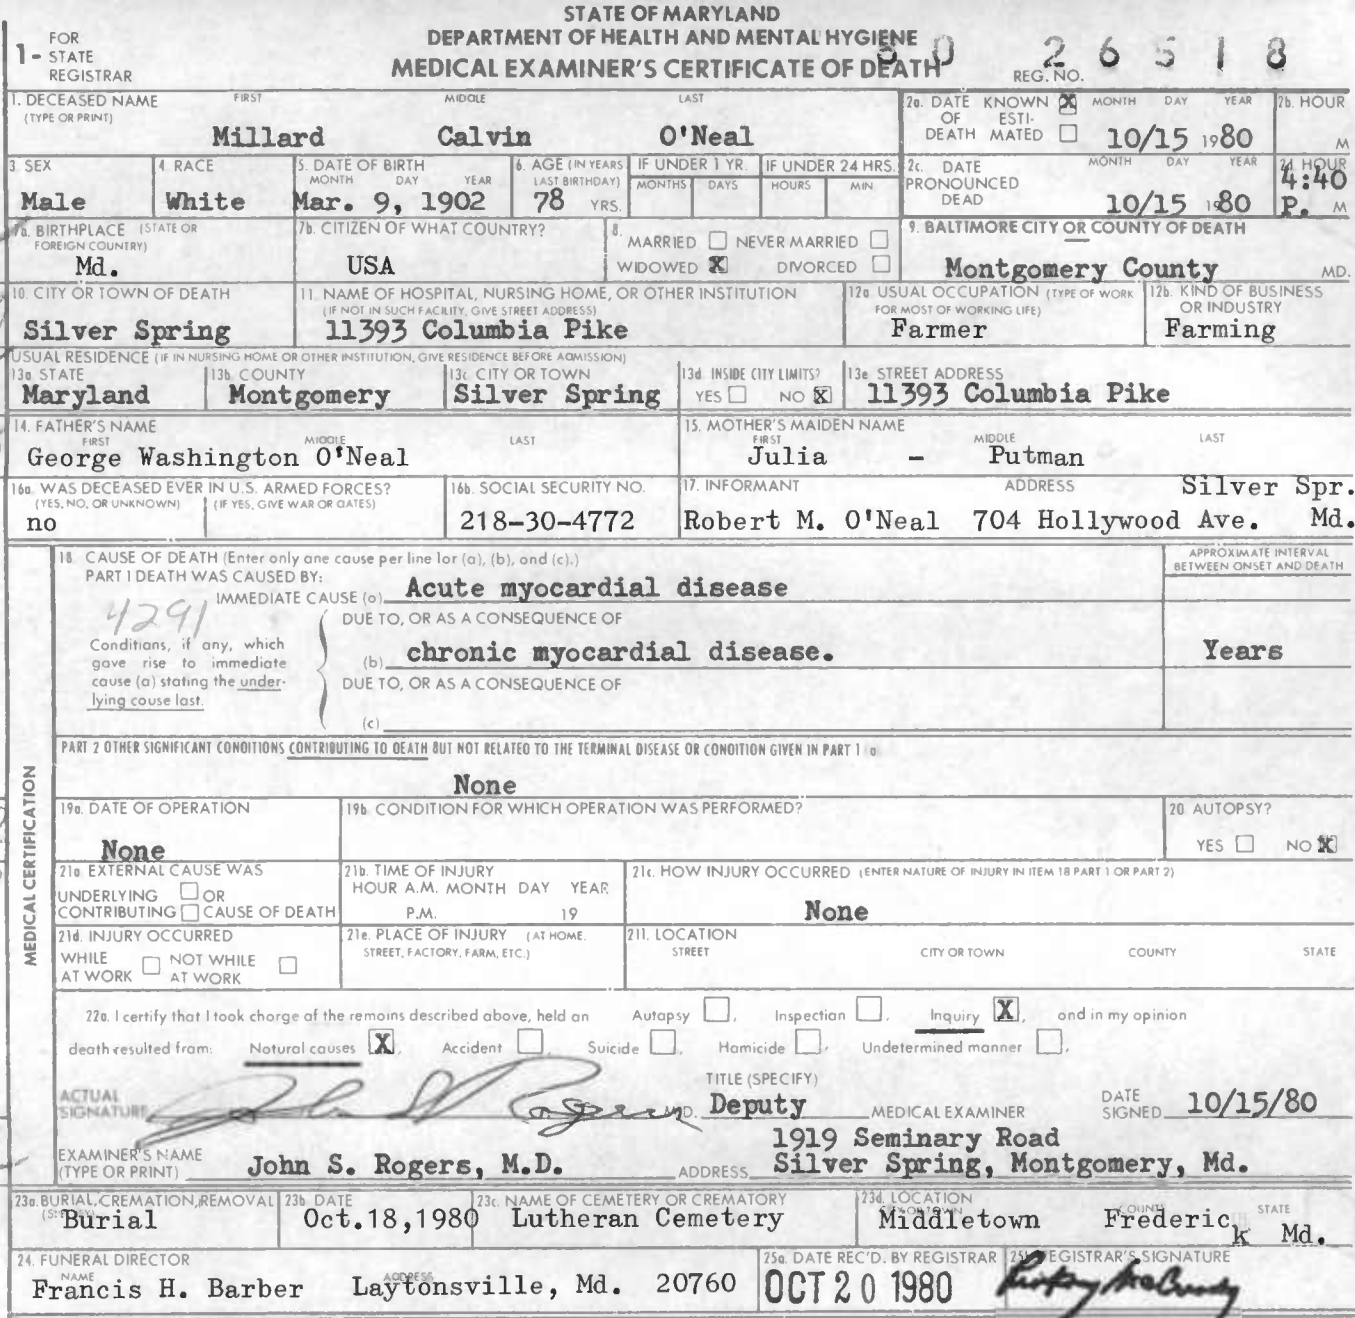 STATE OF MARYLAND
DEPARTMENT OF HEALTH AND MENTAL HYGIENE
MEDICAL EXAMINER'S CERTIFICATE OF DEATH
1- FOR STATE REGISTRAR
REG. NO. 80 26518
1. DECEASED NAME (TYPE OR PRINT) FIRST MIDDLE LAST
Millard Calvin O'Neal
2a. DATE OF DEATH KNOWN X ESTIMATED MONTH DAY YEAR
10/15 1980
2b. HOUR M
3 SEX
Male
4. RACE
White
5. DATE OF BIRTH MONTH DAY YEAR
Mar. 9, 1902
6. AGE (IN YEARS LAST BIRTHDAY)
78 YRS.
IF UNDER 1 YR. MONTHS DAYS
IF UNDER 24 HRS. HOURS MIN
2c. DATE PRONOUNCED DEAD MONTH DAY YEAR
10/15 1980
2d HOUR
4:40 P. M
7a. BIRTHPLACE (STATE OR FOREIGN COUNTRY)
Md.
7b. CITIZEN OF WHAT COUNTRY?
USA
8. MARRIED NEVER MARRIED
WIDOWED X DIVORCED
9. BALTIMORE CITY OR COUNTY OF DEATH
Montgomery County MD.
10. CITY OR TOWN OF DEATH
Silver Spring
11. NAME OF HOSPITAL, NURSING HOME, OR OTHER INSTITUTION
(IF NOT IN SUCH FACILITY, GIVE STREET ADDRESS)
11393 Columbia Pike
12a USUAL OCCUPATION (TYPE OF WORK FOR MOST OF WORKING LIFE)
Farmer
12b. KIND OF BUSINESS OR INDUSTRY
Farming
USUAL RESIDENCE (IF IN NURSING HOME OR OTHER INSTITUTION, GIVE RESIDENCE BEFORE ADMISSION)
13a STATE
Maryland
13b COUNTY
Montgomery
13c CITY OR TOWN
Silver Spring
13d. INSIDE CITY LIMITS?
YES NO X
13e STREET ADDRESS
11393 Columbia Pike
14. FATHER'S NAME FIRST MIDDLE LAST
George Washington O'Neal
15. MOTHER'S MAIDEN NAME FIRST MIDDLE LAST
Julia - Putman
16a. WAS DECEASED EVER IN U.S. ARMED FORCES?
(YES, NO, OR UNKNOWN) (IF YES, GIVE WAR OR DATES)
no
16b. SOCIAL SECURITY NO.
218-30-4772
17. INFORMANT ADDRESS
Silver Spr.
Robert M. O'Neal 704 Hollywood Ave. Md.
MEDICAL CERTIFICATION
18 CAUSE OF DEATH (Enter only one cause per line for (a), (b), and (c).)
APPROXIMATE INTERVAL BETWEEN ONSET AND DEATH
PART I DEATH WAS CAUSED BY:
IMMEDIATE CAUSE (a) Acute myocardial disease
4291
DUE TO, OR AS A CONSEQUENCE OF
Conditions, if any, which gave rise to immediate cause (a) stating the underlying cause last.
(b) chronic myocardial disease. Years
DUE TO, OR AS A CONSEQUENCE OF
(c)
PART 2 OTHER SIGNIFICANT CONDITIONS CONTRIBUTING TO DEATH BUT NOT RELATED TO THE TERMINAL DISEASE OR CONDITION GIVEN IN PART 1 a
None
19a. DATE OF OPERATION
None
19b. CONDITION FOR WHICH OPERATION WAS PERFORMED?
20 AUTOPSY?
YES NO X
21a EXTERNAL CAUSE WAS
UNDERLYING OR
CONTRIBUTING CAUSE OF DEATH
21b. TIME OF INJURY
HOUR A.M. MONTH DAY YEAR
P.M. 19
21c. HOW INJURY OCCURRED (ENTER NATURE OF INJURY IN ITEM 18 PART 1 OR PART 2)
None
21d. INJURY OCCURRED
WHILE AT WORK NOT WHILE AT WORK
21e. PLACE OF INJURY (AT HOME, STREET, FACTORY, FARM, ETC.)
21f. LOCATION
STREET CITY OR TOWN COUNTY STATE
22a. I certify that I took charge of the remains described above, held an Autopsy, Inspection, Inquiry X, and in my opinion
death resulted from: Natural causes X, Accident, Suicide, Homicide, Undetermined manner.
ACTUAL SIGNATURE John S Rogers M.D.
TITLE (SPECIFY)
Deputy MEDICAL EXAMINER
DATE SIGNED 10/15/80
EXAMINER'S NAME (TYPE OR PRINT) John S. Rogers, M.D.
ADDRESS 1919 Seminary Road
Silver Spring, Montgomery, Md.
23a. BURIAL, CREMATION, REMOVAL
Burial
23b DATE
Oct.18,1980
23c. NAME OF CEMETERY OR CREMATORY
Lutheran Cemetery
23d. LOCATION CITY OR TOWN COUNTY STATE
Middletown Frederick Md.
24. FUNERAL DIRECTOR
NAME ADDRESS
Francis H. Barber Laytonsville, Md. 20760
25a. DATE REC'D. BY REGISTRAR
OCT 20 1980
25b REGISTRAR'S SIGNATURE